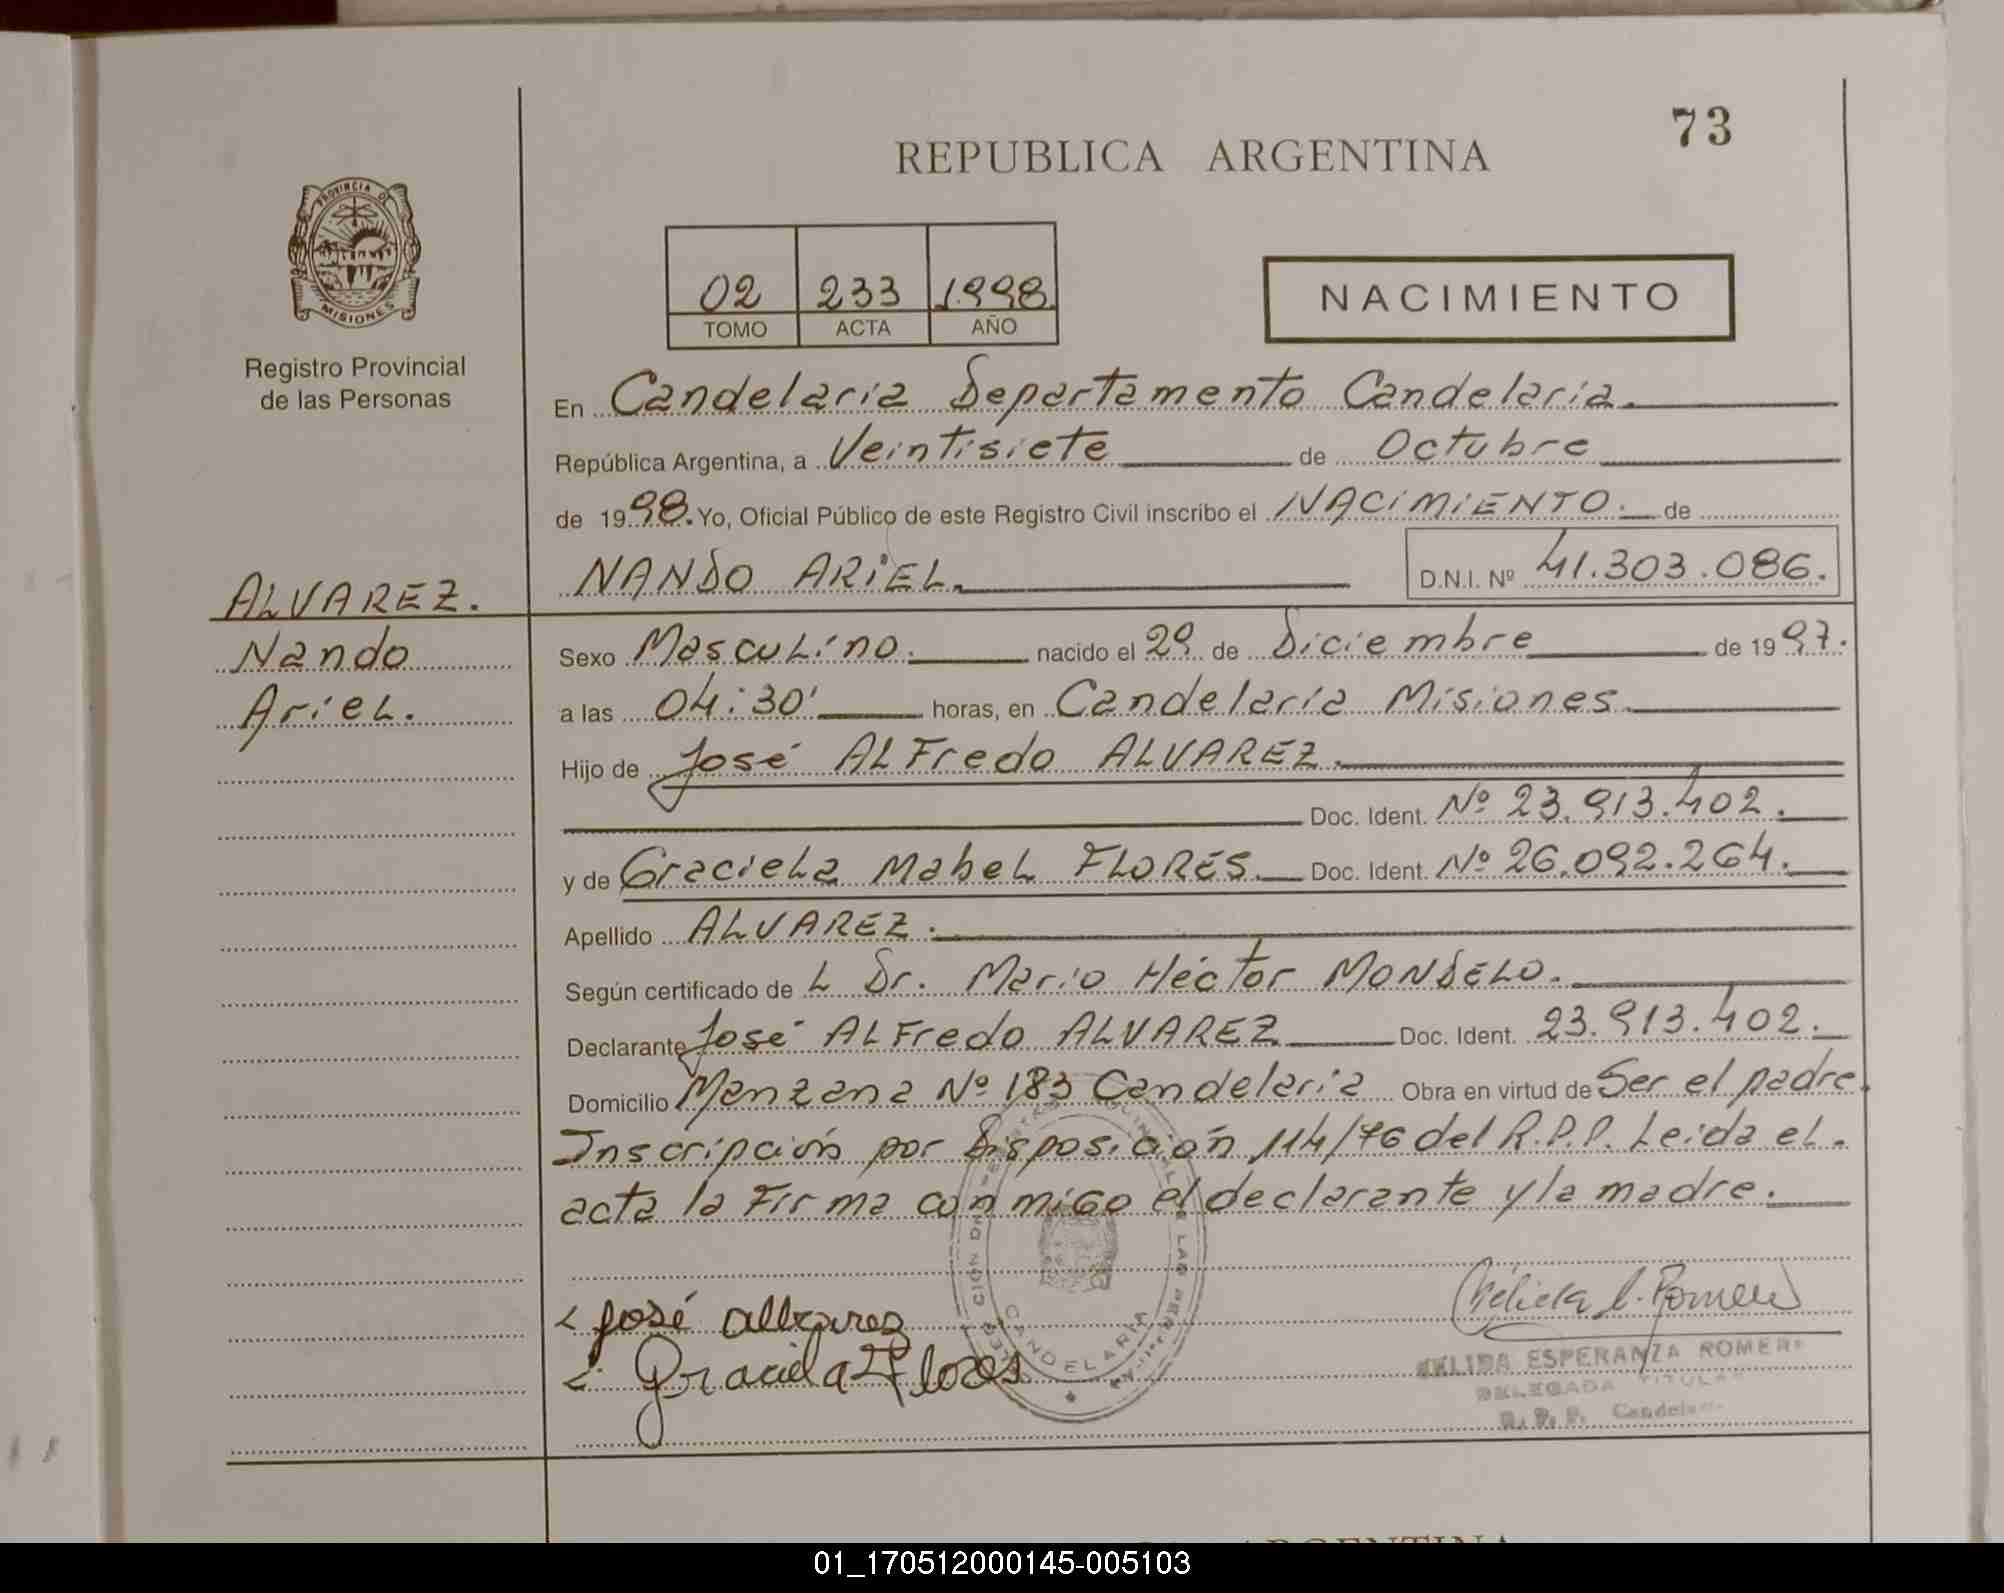 73
REPUBLICA ARGENTINA
PROVINCIA DE
MISIONES
Registro Provincial
de las Personas
02 233 1998
TOMO ACTA AÑO
NACIMIENTO
En Candelaria Departamento Candelaria.
República Argentina, a Veintisiete de Octubre
de 1998. Yo, Oficial Público de este Registro Civil inscribo el NACIMIENTO. de
NANDO ARIEL. D.N.I. Nº 41.303.086.
ALVAREZ.
Nando
Ariel.
Sexo Masculino. nacido el 29 de Diciembre de 1997.
a las 04:30' horas, en Candelaria Misiones
Hijo de José Alfredo ALVAREZ.
Doc. Ident. Nº 23.913.402.
y de Graciela Mabel FLORES. Doc. Ident. Nº 26.092.264.
Apellido ALVAREZ.
Según certificado de L Dr. Mario Héctor MONDELO.
Declarante José Alfredo ALVAREZ Doc. Ident. 23.913.402.
Domicilio Manzana Nº 183 Candelaria Obra en virtud de Ser el padre.
Inscripción por Disposición 114/76 del R.P.P. Leida el.
acta la Firma conmigo el declarante y la madre.
José Alvarez
Graciela Flores
CANDELARIA
ESPERANZA ROMERO
DELEGADA TITULAR
R. P. P. Candelaria
ARGENTINA
01_170512000145-005103